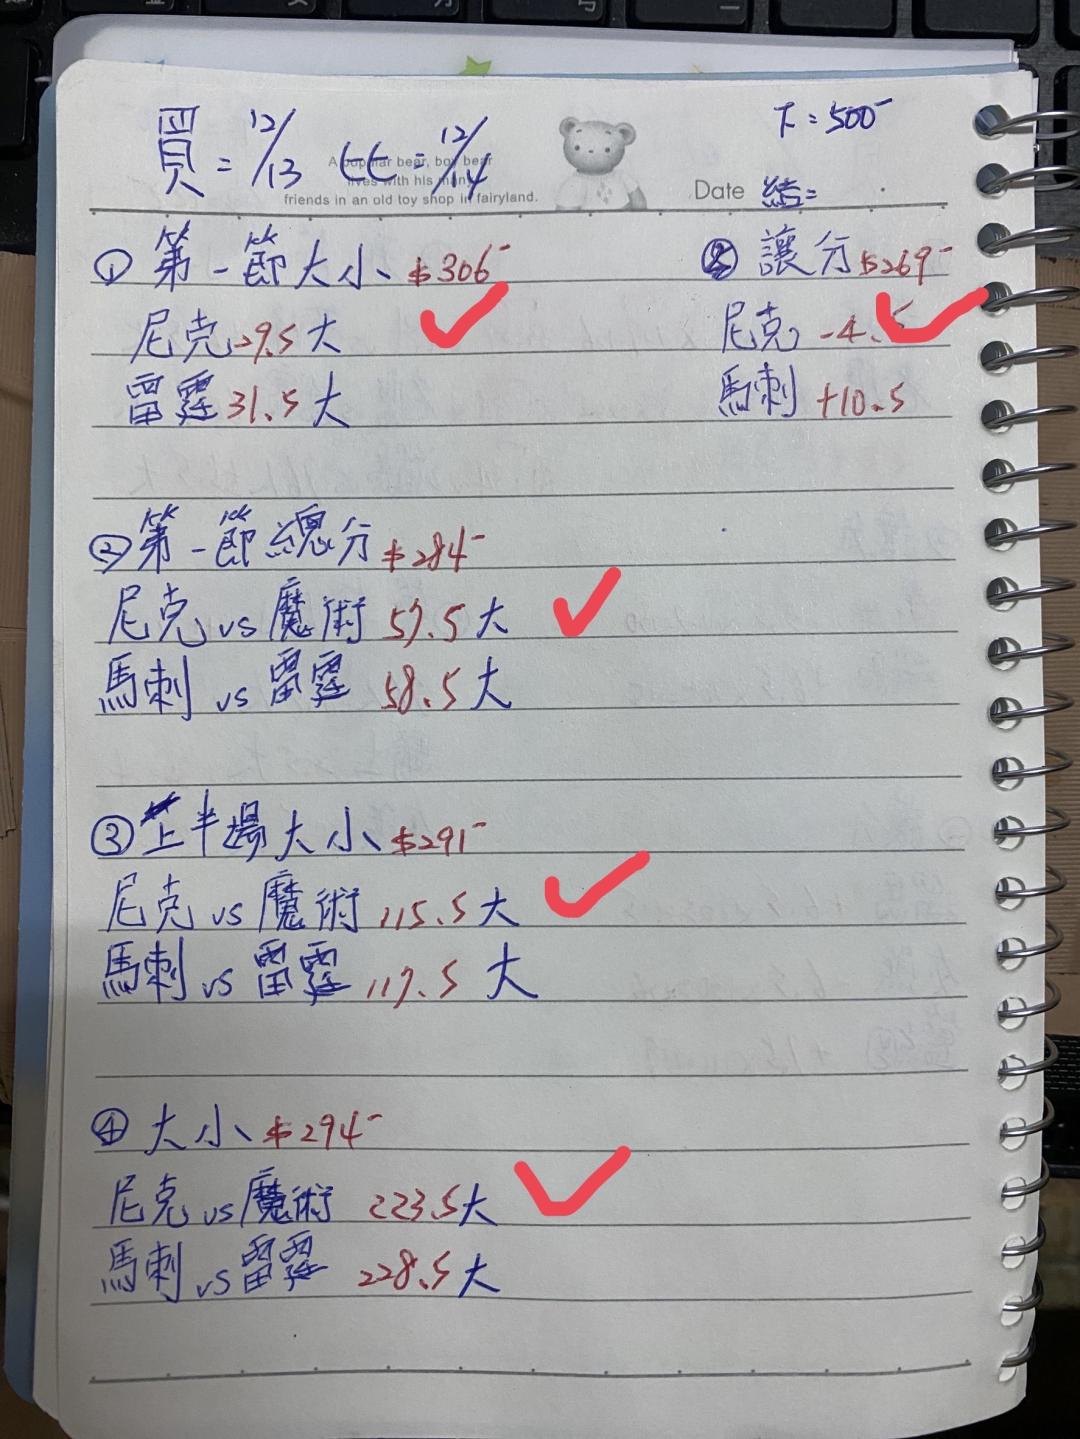 買=12/13 比=12/14
下=500-
A popular bear, boy bear
lives with his many
friends in an old toy shop in fairyland.
Date 結=
① 第一節大小 $306-
尼克 29.5 大
雷霆 31.5 大
讓分 $269-
尼克 -4.5
馬刺 +10.5
② 第一節總分 $284-
尼克 vs 魔術 57.5 大
馬刺 vs 雷霆 58.5 大
③ 上半場大小 $291-
尼克 vs 魔術 115.5 大
馬刺 vs 雷霆 117.5 大
④ 大小 $294-
尼克 vs 魔術 223.5 大
馬刺 vs 雷霆 228.5 大